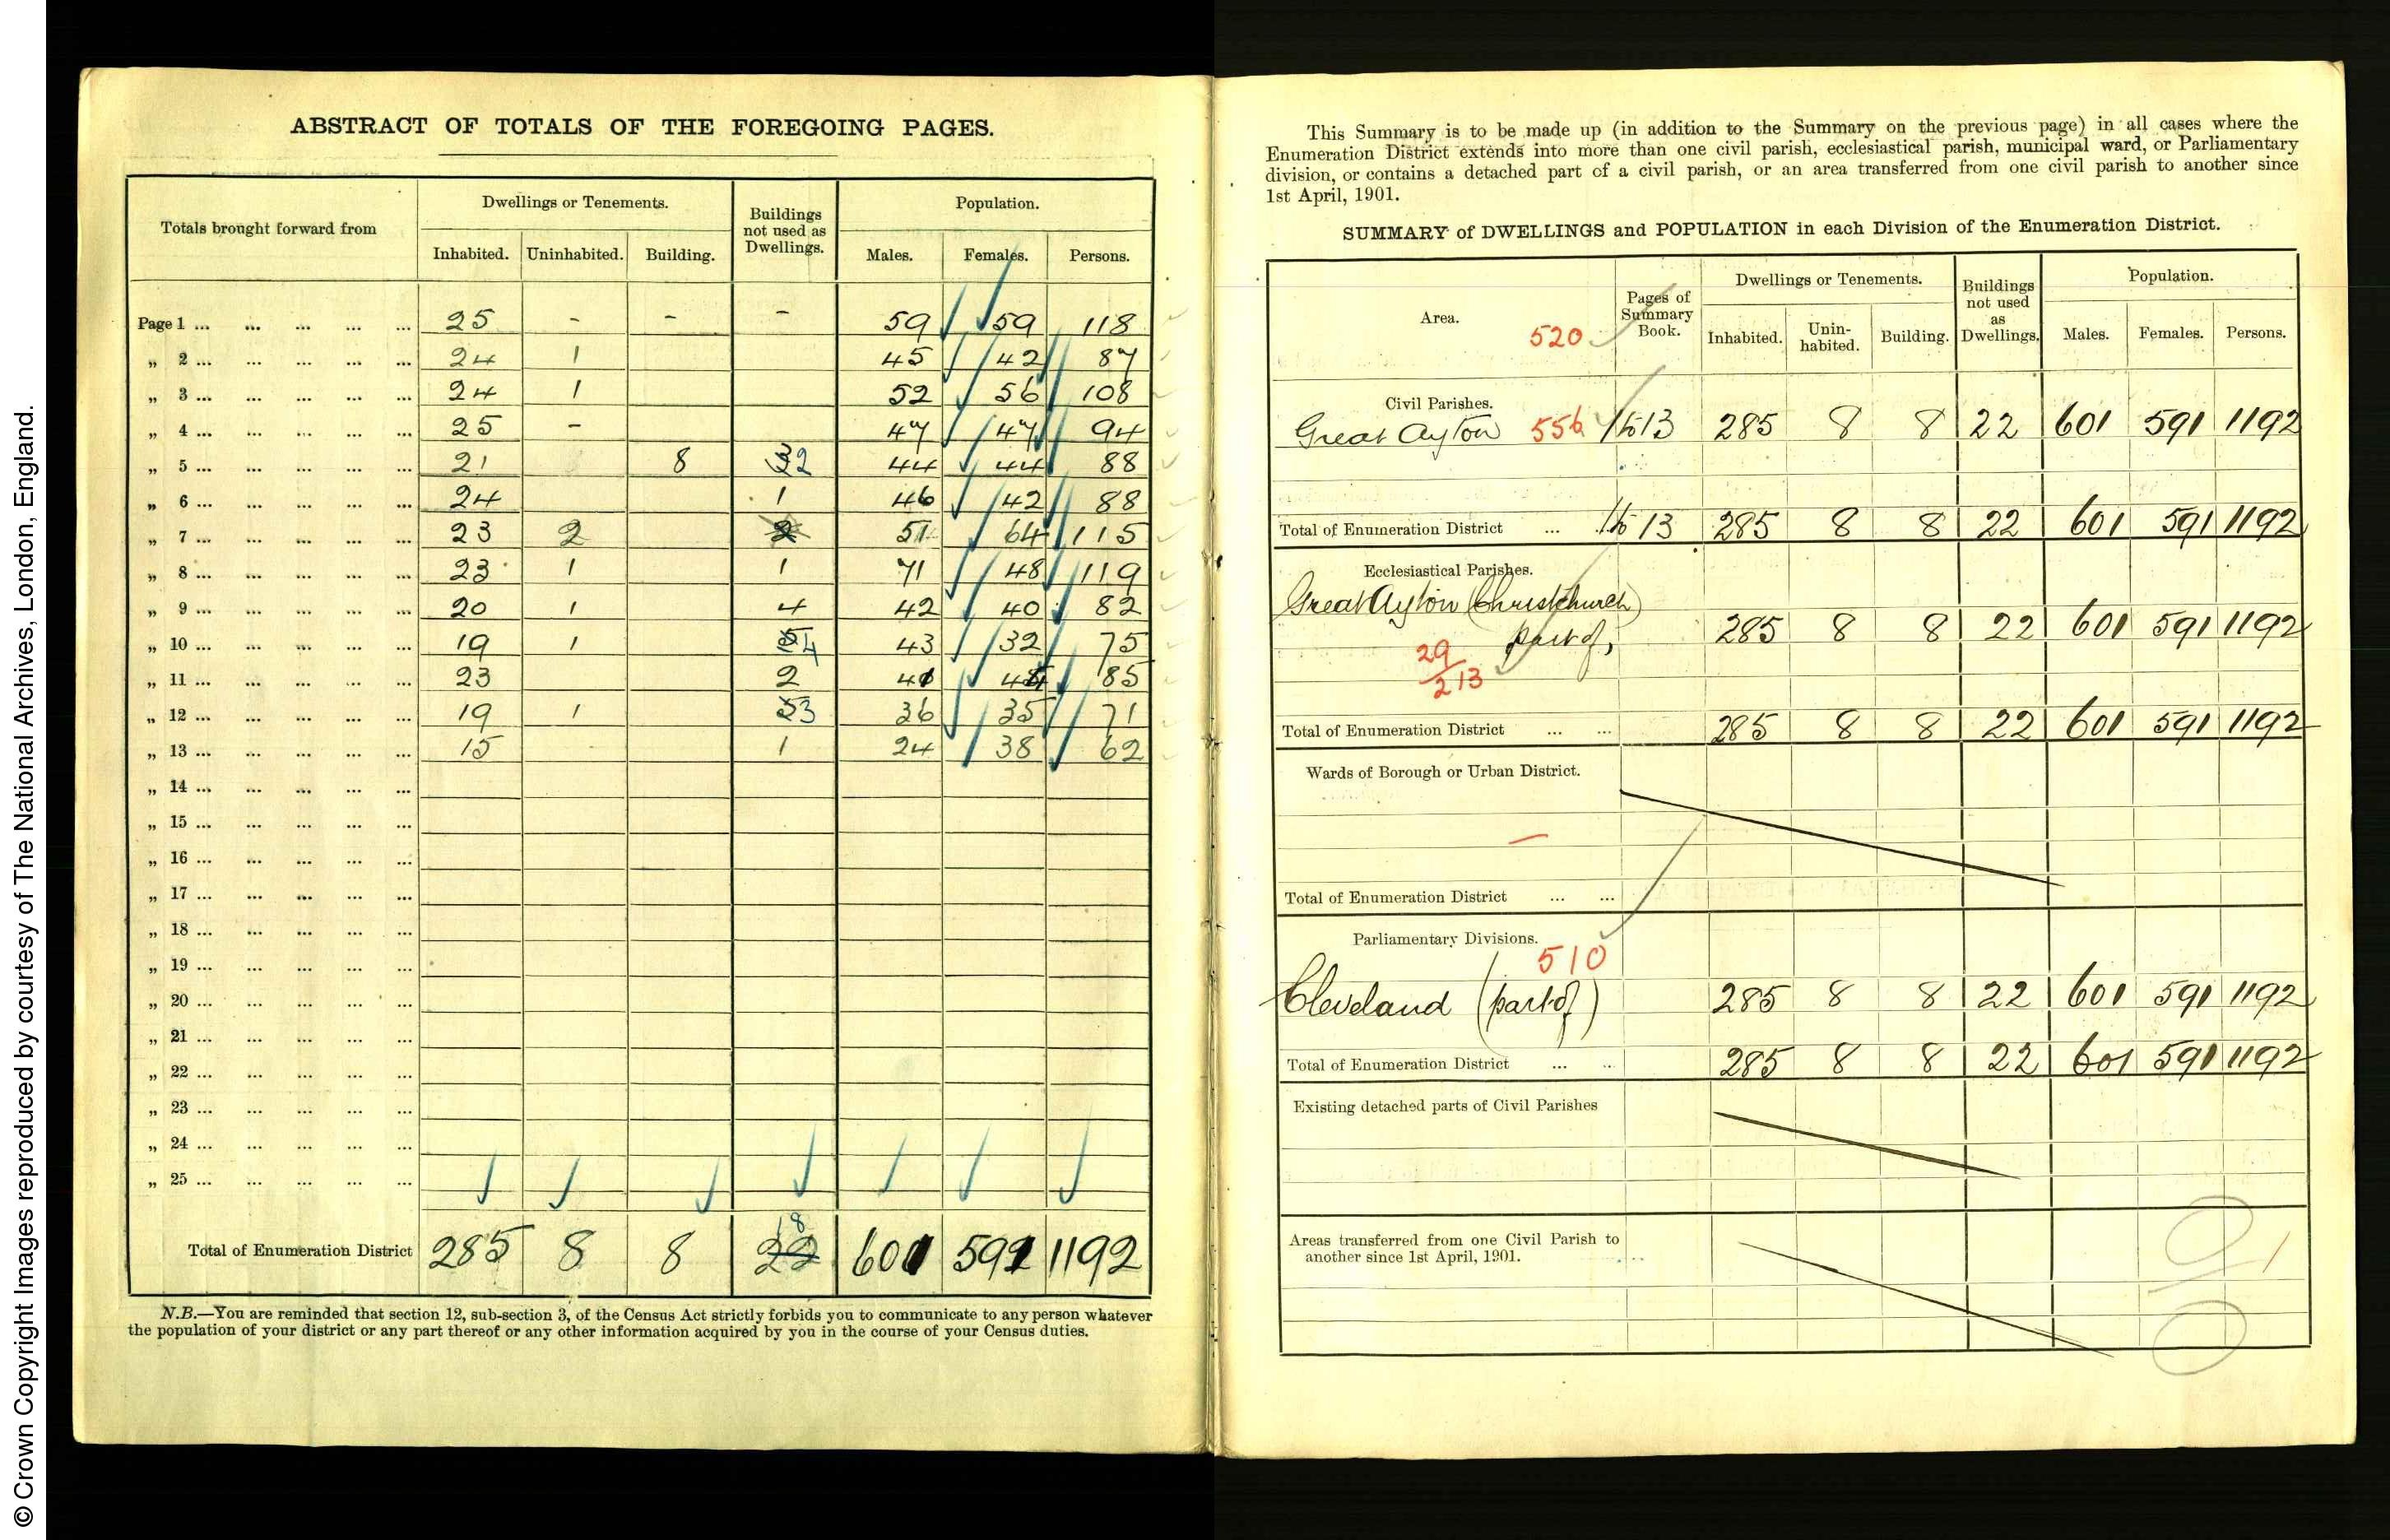 © Crown Copyright Images reproduced by courtesy of The National Archives, London, England.
ABSTRACT OF TOTALS OF THE FOREGOING PAGES.
Totals brought forward from
Dwellings or Tenements.
Buildings not used as Dwellings.
Population.
Inhabited. Uninhabited. Building. Males. Females. Persons.
Page 1 ... ... ... ... ... 25 - - - 59 59 118
„ 2 ... ... ... ... ... 24 1 45 42 87
„ 3 ... ... ... ... ... 24 1 52 56 108
„ 4 ... ... ... ... ... 25 - 47 47 94
„ 5 ... ... ... ... ... 21 8 2 44 44 88
„ 6 ... ... ... ... ... 24 1 46 42 88
„ 7 ... ... ... ... ... 23 2 2 51 64 115
„ 8 ... ... ... ... ... 23 1 1 71 48 119
„ 9 ... ... ... ... ... 20 1 4 42 40 82
„ 10 ... ... ... ... ... 19 1 5 4 43 32 75
„ 11 ... ... ... ... ... 23 2 41 44 85
„ 12 ... ... ... ... ... 19 1 5 3 36 35 71
„ 13 ... ... ... ... ... 15 1 24 38 62
„ 14 ... ... ... ... ...
„ 15 ... ... ... ... ...
„ 16 ... ... ... ... ...
„ 17 ... ... ... ... ...
„ 18 ... ... ... ... ...
„ 19 ... ... ... ... ...
„ 20 ... ... ... ... ...
„ 21 ... ... ... ... ...
„ 22 ... ... ... ... ...
„ 23 ... ... ... ... ...
„ 24 ... ... ... ... ...
„ 25 ... ... ... ... ...
18
Total of Enumeration District 285 8 8 22 601 591 1192
N.B.—You are reminded that section 12, sub-section 3, of the Census Act strictly forbids you to communicate to any person whatever
the population of your district or any part thereof or any other information acquired by you in the course of your Census duties.
This Summary is to be made up (in addition to the Summary on the previous page) in all cases where the
Enumeration District extends into more than one civil parish, ecclesiastical parish, municipal ward, or Parliamentary
division, or contains a detached part of a civil parish, or an area transferred from one civil parish to another since
1st April, 1901.
SUMMARY of DWELLINGS and POPULATION in each Division of the Enumeration District.
Area.
520
Pages of Summary Book.
Dwellings or Tenements.
Buildings not used as Dwellings.
Population.
Inhabited. Unin-habited. Building. Males. Females. Persons.
Civil Parishes.
Great Ayton 556 1 to 13 285 8 8 22 601 591 1192
Total of Enumeration District ... 1 to 13 285 8 8 22 601 591 1192
Ecclesiastical Parishes.
Great Ayton (Christchurch)
part of, 285 8 8 22 601 591 1192
29
213
Total of Enumeration District ... ... 285 8 8 22 601 591 1192
Wards of Borough or Urban District.
Total of Enumeration District ... ...
Parliamentary Divisions.
510
Cleveland (part of) 285 8 8 22 601 591 1192
Total of Enumeration District ... ... 285 8 8 22 601 591 1192
Existing detached parts of Civil Parishes
Areas transferred from one Civil Parish to
another since 1st April, 1901. ...